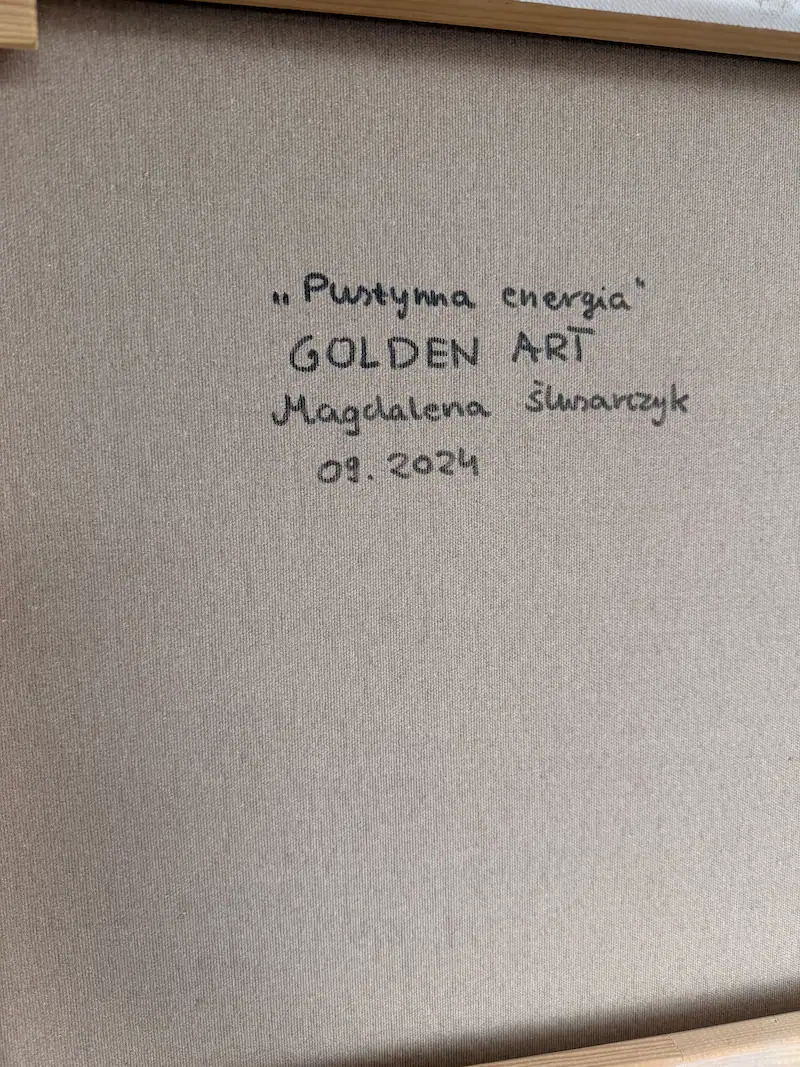 „Pustynna energia"
GOLDEN ART
Magdalena Ślusarczyk
09.2024